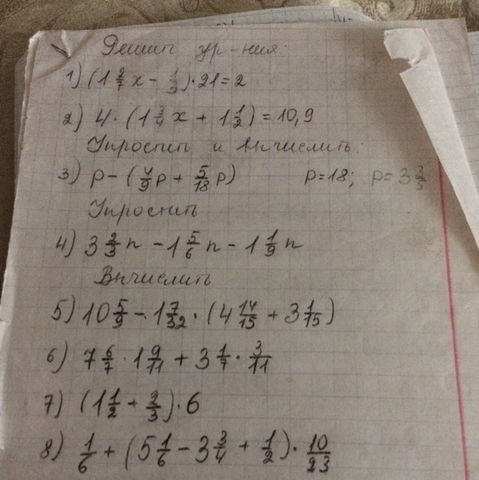 Решить ур-ния:
1) (1 2/7 x - 1/3) · 21 = 2
2) 4 · (1 3/4 x + 1 1/2) = 10,9
Упростить и вычислить:
3) p - (4/9 p + 5/18 p) p = 18; p = 3 3/5
Упростить
4) 3 2/3 n - 1 5/6 n - 1 1/9 n
Вычислить
5) 10 5/9 - 1 7/32 · (4 14/15 + 3 1/15)
6) 7 6/7 · 1 9/11 + 3 1/7 · 3/11
7) (1 1/2 + 2/3) · 6
8) 1/6 + (5 1/6 - 3 3/4 + 1/2) · 10/23